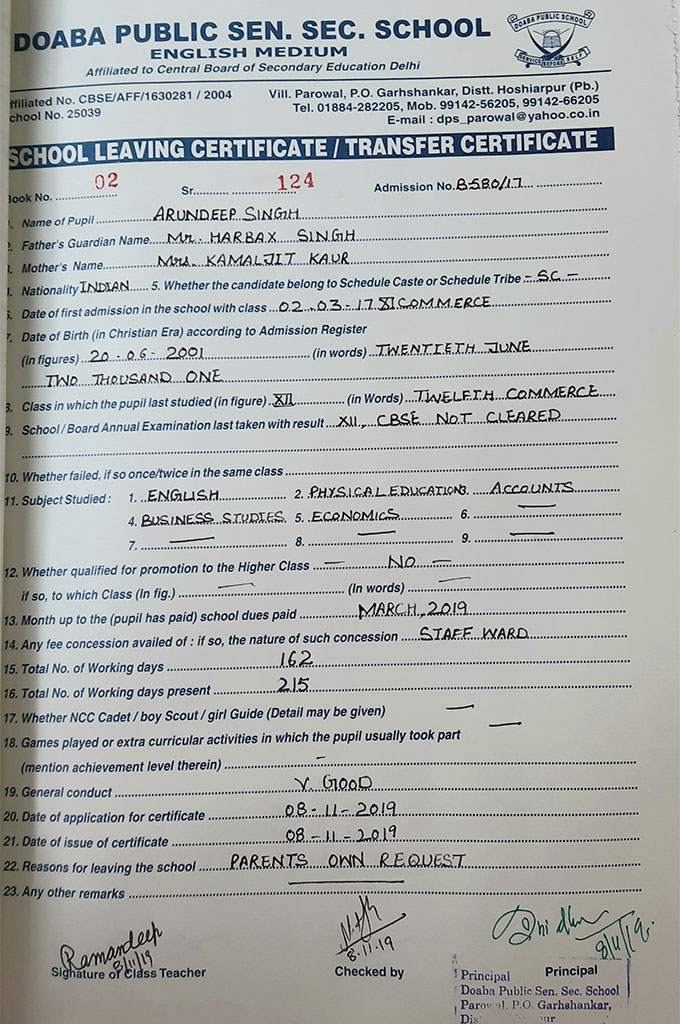 DOABA PUBLIC SEN. SEC. SCHOOL
ENGLISH MEDIUM
Affiliated to Central Board of Secondary Education Delhi
DOABA PUBLIC SCHOOL
SERVICE BEFORE SELF
ffiliated No. CBSE/AFF/1630281 / 2004 Vill. Parowal, P.O. Garhshankar, Distt. Hoshiarpur (Pb.)
chool No. 25039 Tel. 01884-282205, Mob. 99142-56205, 99142-66205
E-mail : dps_parowal@yahoo.co.in
SCHOOL LEAVING CERTIFICATE / TRANSFER CERTIFICATE
Book No. 02 Sr. 124 Admission No. B-580/17
1. Name of Pupil ARUNDEEP SINGH
2. Father's Guardian Name Mr. HARBAX SINGH
3. Mother's Name Mrs. KAMALJIT KAUR
4. Nationality INDIAN 5. Whether the candidate belong to Schedule Caste or Schedule Tribe - SC -
6. Date of first admission in the school with class 02-03-17 XI COMMERCE
7. Date of Birth (in Christian Era) according to Admission Register
(in figures) 20-06-2001 (in words) TWENTIETH JUNE
TWO THOUSAND ONE
8. Class in which the pupil last studied (in figure) XII (in Words) TWELFTH COMMERCE
9. School / Board Annual Examination last taken with result XII, CBSE NOT CLEARED
10. Whether failed, if so once/twice in the same class
11. Subject Studied : 1. ENGLISH 2. PHYSICAL EDUCATION 3. ACCOUNTS
4. BUSINESS STUDIES 5. ECONOMICS 6. —
7. — 8. — 9. —
12. Whether qualified for promotion to the Higher Class — NO —
if so, to which Class (In fig.) — (In words) —
13. Month up to the (pupil has paid) school dues paid MARCH, 2019
14. Any fee concession availed of : if so, the nature of such concession STAFF WARD
15. Total No. of Working days 162
16. Total No. of Working days present 215
17. Whether NCC Cadet / boy Scout / girl Guide (Detail may be given) —
18. Games played or extra curricular activities in which the pupil usually took part —
(mention achievement level therein) -
19. General conduct V. GOOD
20. Date of application for certificate 08-11-2019
21. Date of issue of certificate 08-11-2019
22. Reasons for leaving the school PARENTS OWN REQUEST
23. Any other remarks —
Ramandeep
8/11/19
8.11.19
8/11/19
Signature of Class Teacher Checked by Principal
Principal
Doaba Public Sen. Sec. School
Parowal, P.O. Garhshankar,